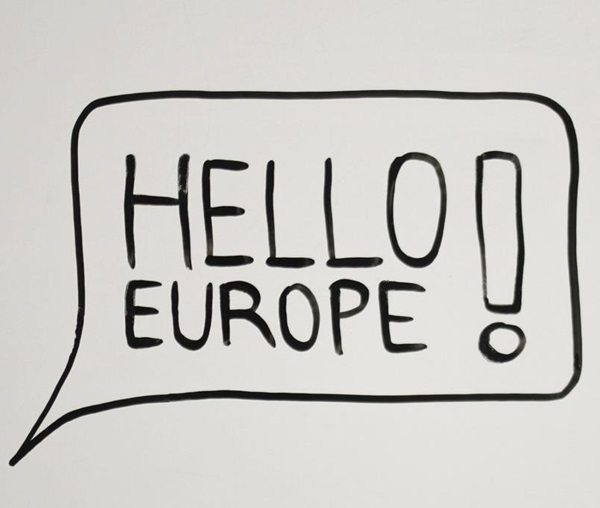 HELLO
EUROPE!